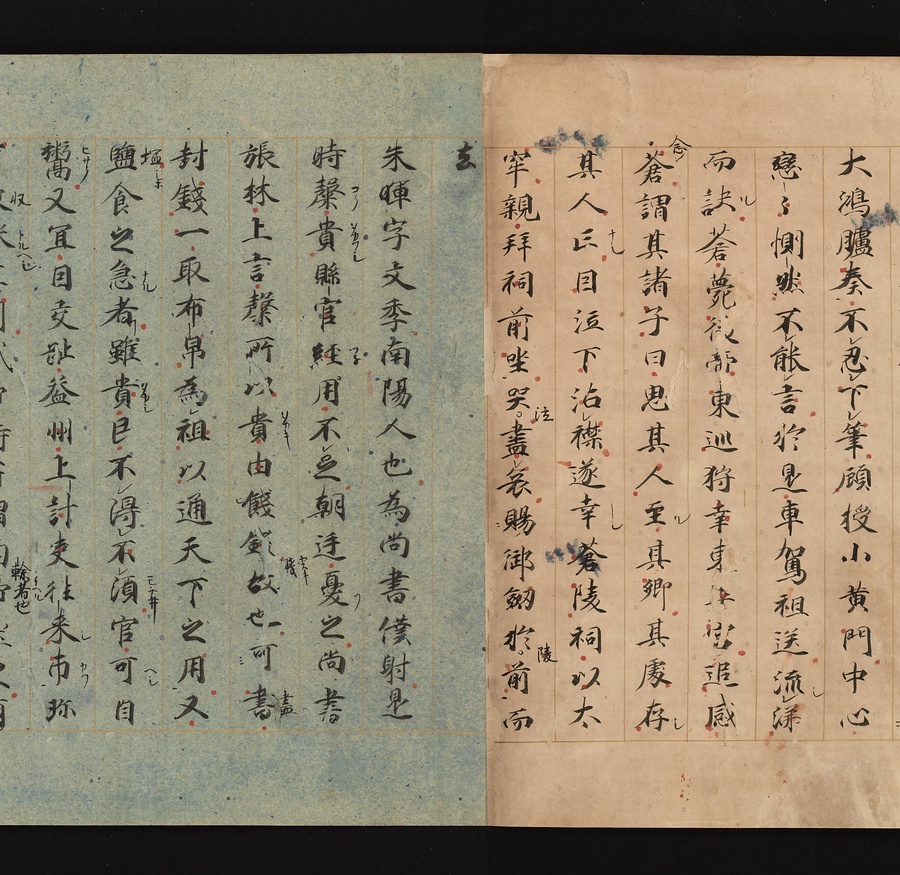 大鴻臚奏不忍下筆顧授小黄門中心
戀々惻然不能言於是車駕祖送流涕
而訣蒼薨後帝東巡狩幸東平宮追感
蒼謂其諸子曰思其人至其郷其處存
其人亡因泣下沾襟遂幸蒼陵祠以太
牢親拜祠前坐哭盡哀賜御劒於前而
去
朱暉字文季南陽人也為尚書僕射是
時糓貴縣官經用不足朝廷憂之尚書
張林上言糓所以貴由錢賤故也可書
封錢一取布帛為租以通天下之用又
鹽食之急者雖貴已不得不湏官可自
鬻又宜因交趾益州上計吏往来市珎